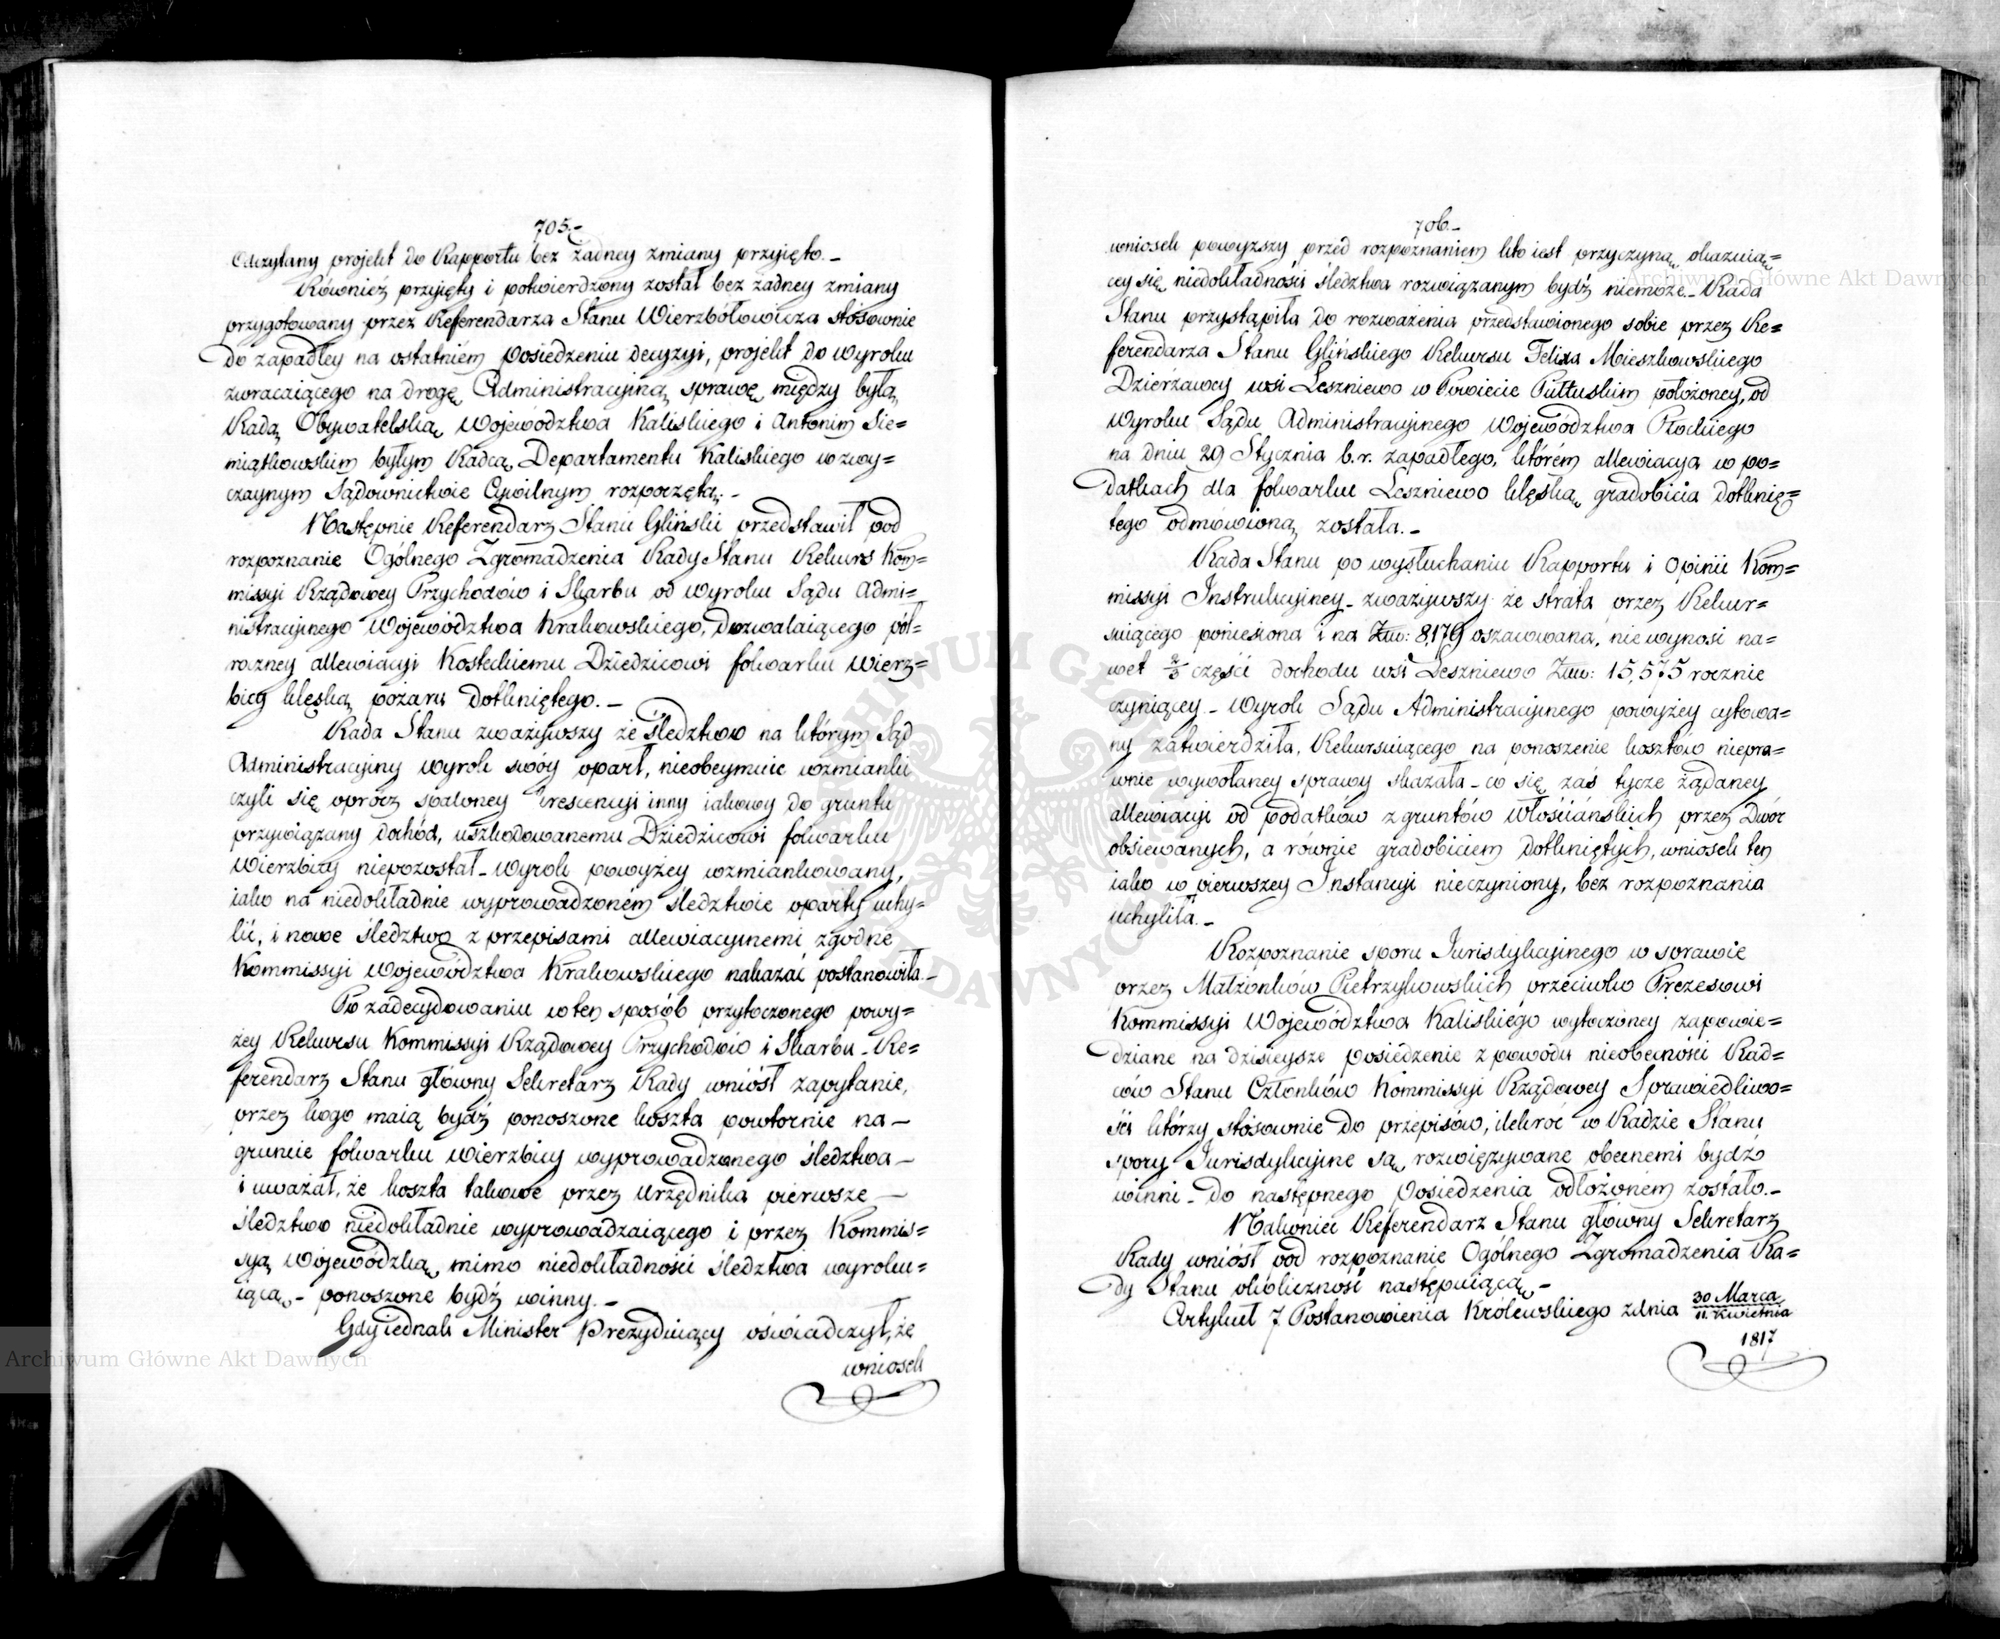 705.-
Odczytany projekt do Rapportu bez żadney zmiany przyięto.-
Również przyięty i potwierdzony został bez żadney zmiany
przygotowany przez Referendarza Stanu Wierzbołowicza stósownie
do zapadłey na ostatniém posiedzeniu decyzyi, projekt do wyroku
zwracaiącego na drogę Administracyiną sprawę między byłą
Radą Obywatelską Województwa Kaliskiego i Antonim Sie=
miątkowskim byłym Radcą Departamentu Kaliskiego w zwy=
czaynym Sądownictwie Cywilnym rozpoczętą.-
Następnie Referendarz Stanu Gliński przedstawił pod
rozpoznanie Ogólnego Zgromadzenia Rady Stanu Rekurs Kom=
missyi Rządowey Przychodów i Skarbu od wyroku Sądu Admi=
nistracyinego Województwa Krakowskiego, dozwalaiącego pół=
roczney allewiacyi Kosteckiemu Dziedzicowi folwarku Wierz=
bicy klęską pożaru dotkniętego.-
Rada Stanu zważywszy że śledztwo na którym Sąd
Administracyiny wyrok swóy oparł, nieobeymuie wzmianki
czyli się oprócz spaloney Crescencyi inny iakowy do gruntu
przywiązany dochód, uszkodowanemu Dziedzicowi folwarku
Wierzbicy niepozostał - wyrok powyżey wzmiankowany,
iako na niedokładnie wyprowadzoném śledztwie oparty uchy=
lić, i nowe śledztwo z przepisami allewiacyinemi zgodne
Kommissyi Województwa Krakowskiego nakazać postanowiła.-
Po zadecydowaniu w ten sposób przytoczonego powy=
żey Rekursu Kommissyi Rządowey Przychodów i Skarbu - Re=
ferendarz Stanu główny Sekretarz Rady wniósł zapytanie,
przez kogo maią bydź ponoszone koszta powtórnie na-
gruncie folwarku Wierzbicy wyprowadzonego śledztwa-
i uważał, że koszta takowe przez Urzędnika pierwsze-
śledztwo niedokładnie wyprowadzaiącego i przez Kommis=
syą Wojewódzką, mimo niedokładności śledztwa wyroku=
iącą - ponoszone bydź winny.-
Gdy iednak Minister Prezyduiący oświadczył, że
wniosek
706.-
wniosek powyższy przed rozpoznaniem kto iest przyczyną okazuią=
cey się niedokładności śledztwa rozwiązanym bydź niemoże - Rada
Stanu przystąpiła do rozważenia przedstawionego sobie przez Re=
ferendarza Stanu Glińskiego Rekursu Felixa Mieszkowskiego
Dzierżawcy wsi Leszniewo w Powiecie Pułtuskim położoney, od
wyroku Sądu Administracyinego Województwa Płockiego
na dniu 29 Stycznia b. r. zapadłego, którém allewiacya w po=
datkach dla folwarku Leszniewo klęską gradobicia dotknię=
tego odmówioną została.-
Rada Stanu po wysłuchaniu Rapportu i Opinii Kom=
missyi Instrukcyiney - zważywszy że strata przez Rekur=
suiącego poniesiona i na Złw: 8,179 oszacowana, nie wynosi na=
wet 2/3 części dochodu wsi Leszniewo Złw: 15,575 rocznie
czyniącey - wyrok Sądu Administracyinego powyżey cytowa=
ny zatwierdziła, Rekursuiącego na ponoszenie kosztów niepra=
wnie wywołaney sprawy skazała - co się zaś tycze żądaney
allewiacyi od podatków z gruntów włościańskich przez Dwór
obsiewanych, a równie gradobiciem dotkniętych, wniosek ten
iako w pierwszey Instancyi nieczyniony, bez rozpoznania
uchyliła.-
Rozpoznanie sporu Jurisdykcyinego w sprawie
przez Małżonków Pietrzykowskich przeciwko Prezesowi
Kommissyi Województwa Kaliskiego wytoczoney zapowie=
dziane na dzisieysze posiedzenie z powodu nieobecności Rad=
ców Stanu Członków Kommissyi Rządowey Sprawiedliwo=
ści którzy stósownie do przepisów, ilekroć w Radzie Stanu
spory Jurisdykcyine są rozwięzywane obecnemi bydź
winni - do następnego posiedzenia odłożoném zostało.-
Nakoniec Referendarz Stanu główny Sekretarz
Rady wniósł pod rozpoznanie Ogólnego Zgromadzenia Ra=
dy Stanu okoliczność następuiącą.-
Artykuł 7 Postanowienia Królewskiego z dnia 30 Marca / 11 Kwietnia
1817
Archiwum Główne Akt Dawnych
Archiwum Główne Akt Dawnych
ARCHIWUM GŁÓWNE AKT DAWNYCH